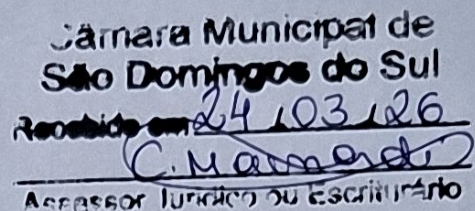 Câmara Municipal de
São Domingos do Sul
Recebido em 24/03/26
C.
Assessor Jurídico ou Escriturário